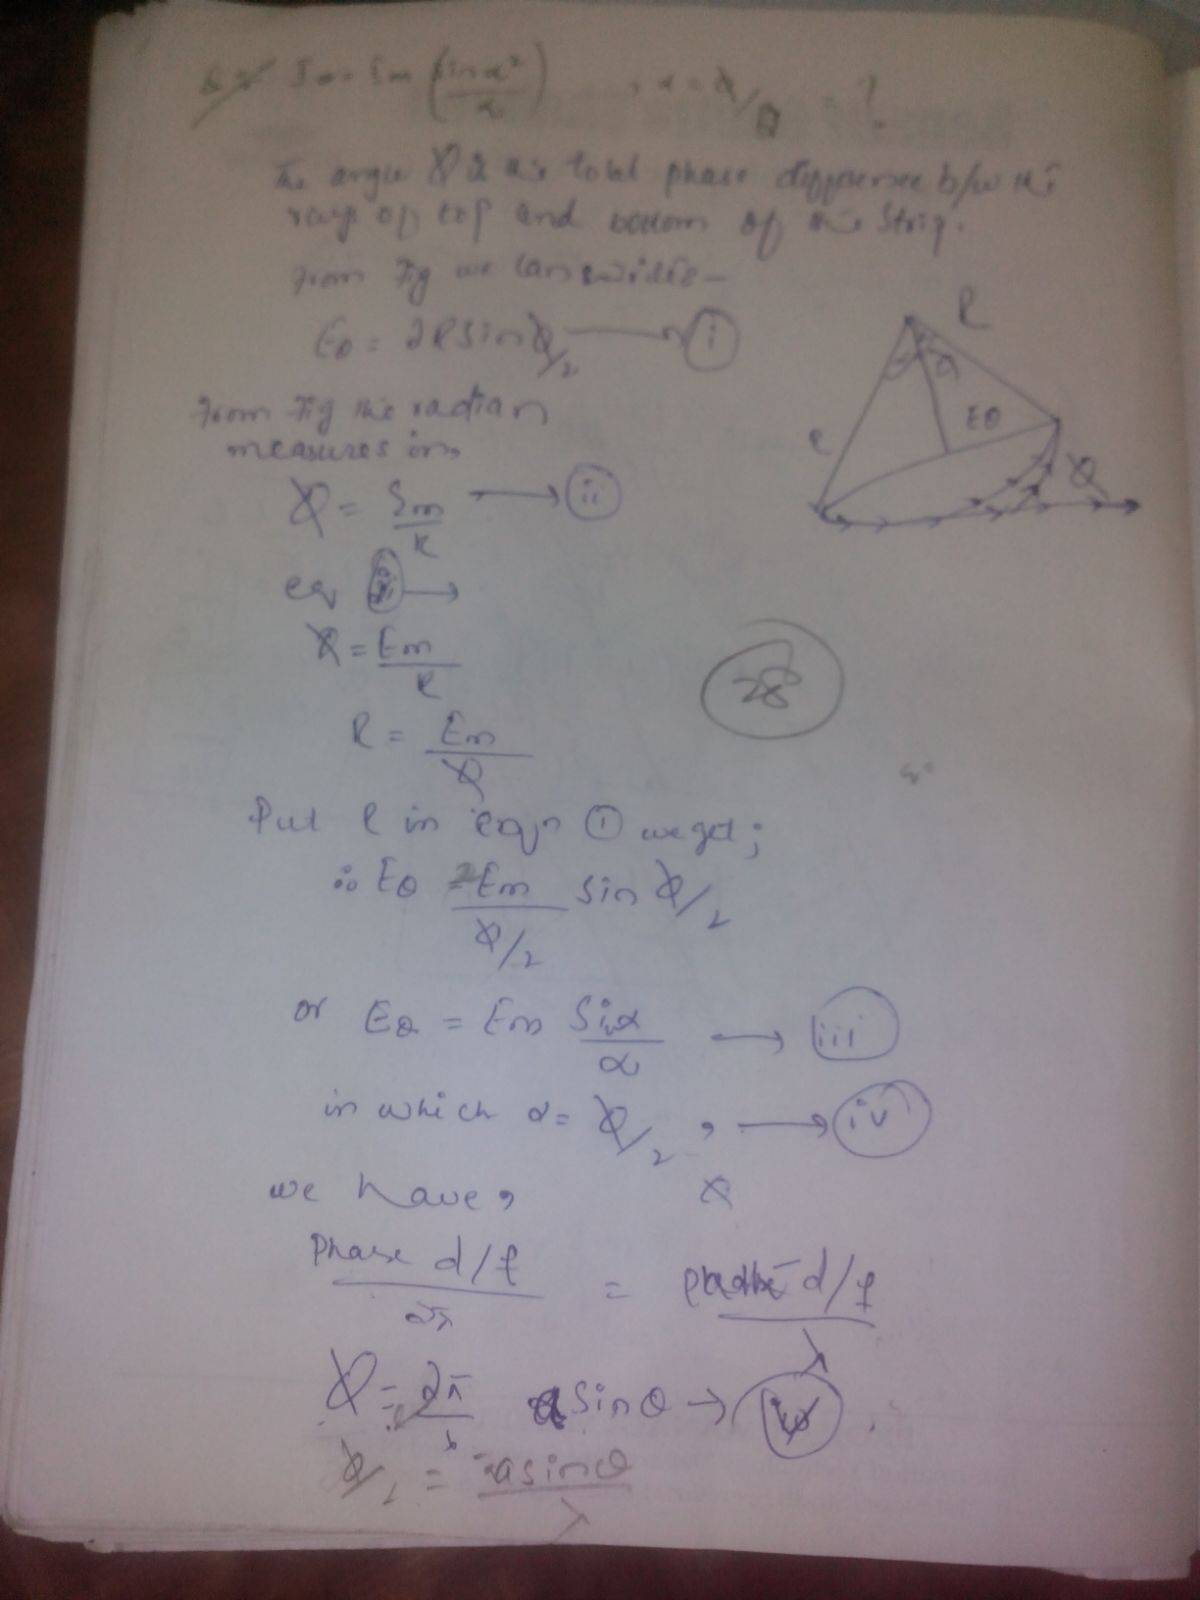 Iθ = Im (sinα²/α) , α = φ/2 = ?
The angle φ is the total phase difference b/w the
rays of top and bottom of the strip.
From Fig we can write —
Eθ = 2R sin φ/2 → (i)
From Fig the radian
measures in,
φ = Em/R → (ii)
eq (ii) →
φ = Em/R
R = Em/φ
Put R in eqn (1) we get;
∴ Eθ = Em/φ/2 sin φ/2
or Eθ = Em Sinα/α → (iii)
in which α = φ/2 , → (iv)
φ
we have,
Phase d/f / 2π = path d/f / λ
φ = 2π/λ a sinθ → (v)
φ/2 = a sinθ / λ
R
R
α
Eθ
φ
28